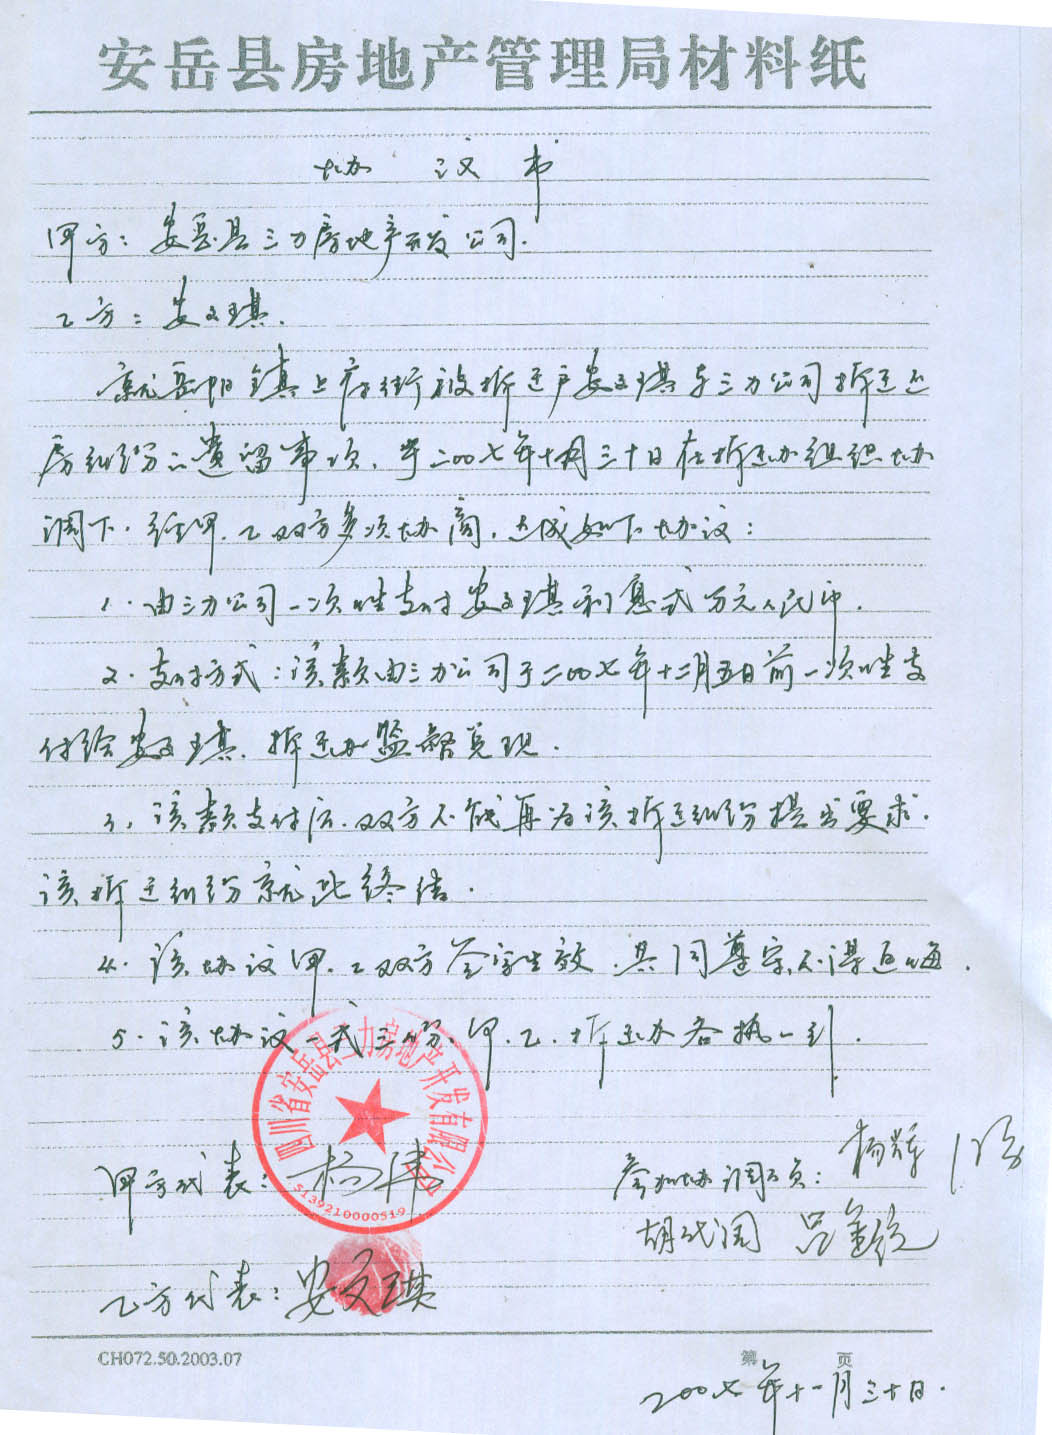 安岳县房地产管理局材料纸
协议书
甲方：安岳县三力房地产开发公司.
乙方：安文琪.
就岳阳镇上府街被拆迁户安文琪与三力公司拆迁还
房纠纷的遗留事项，于二00七年十一月三十日在拆迁办组织协
调下.经甲.乙双方多次协商，达成如下协议：
1.由三力公司一次性支付安文琪利息式万元人民币.
2.支付方式：该款由三力公司于二00七年十二月五日前一次性支
付给安文琪.拆迁办监督兑现.
3、该款支付后.双方不能再为该拆迁纠纷提出要求.
该拆迁纠纷就此终结.
4.该协议甲.乙双方签字生效.共同尊守、不得返悔.
5.该协议一式三份、甲.乙.拆迁办各执一引.
四川省安岳县三力房地产开发有限公司
5139210000519
甲方代表：杨伟
参加协调人员：杨辉
胡代润 吕金统
乙方代表：安文琪
CH072.50.2003.07
第 页
二00七年十一月三十日.